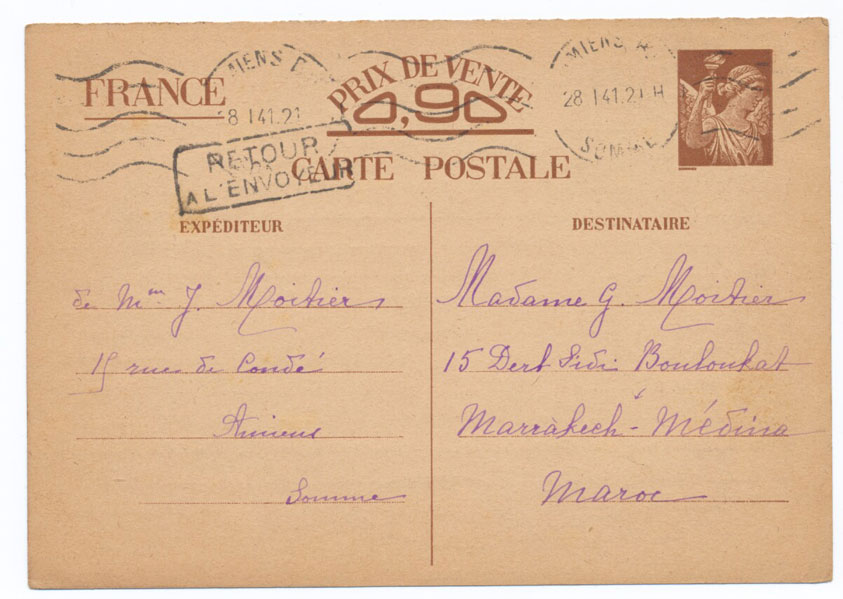 FRANCE
PRIX DE VENTE
0,90
28 I 41.21
28 I 41.21 H
RETOUR
A L'ENVOYEUR
CARTE POSTALE
EXPÉDITEUR
de Mme J. Moitier
15 rue de Condé
Amiens
Somme
DESTINATAIRE
Madame G. Moitier
15 Derb Sidi Bouloukat
Marrakech - Médina
Maroc